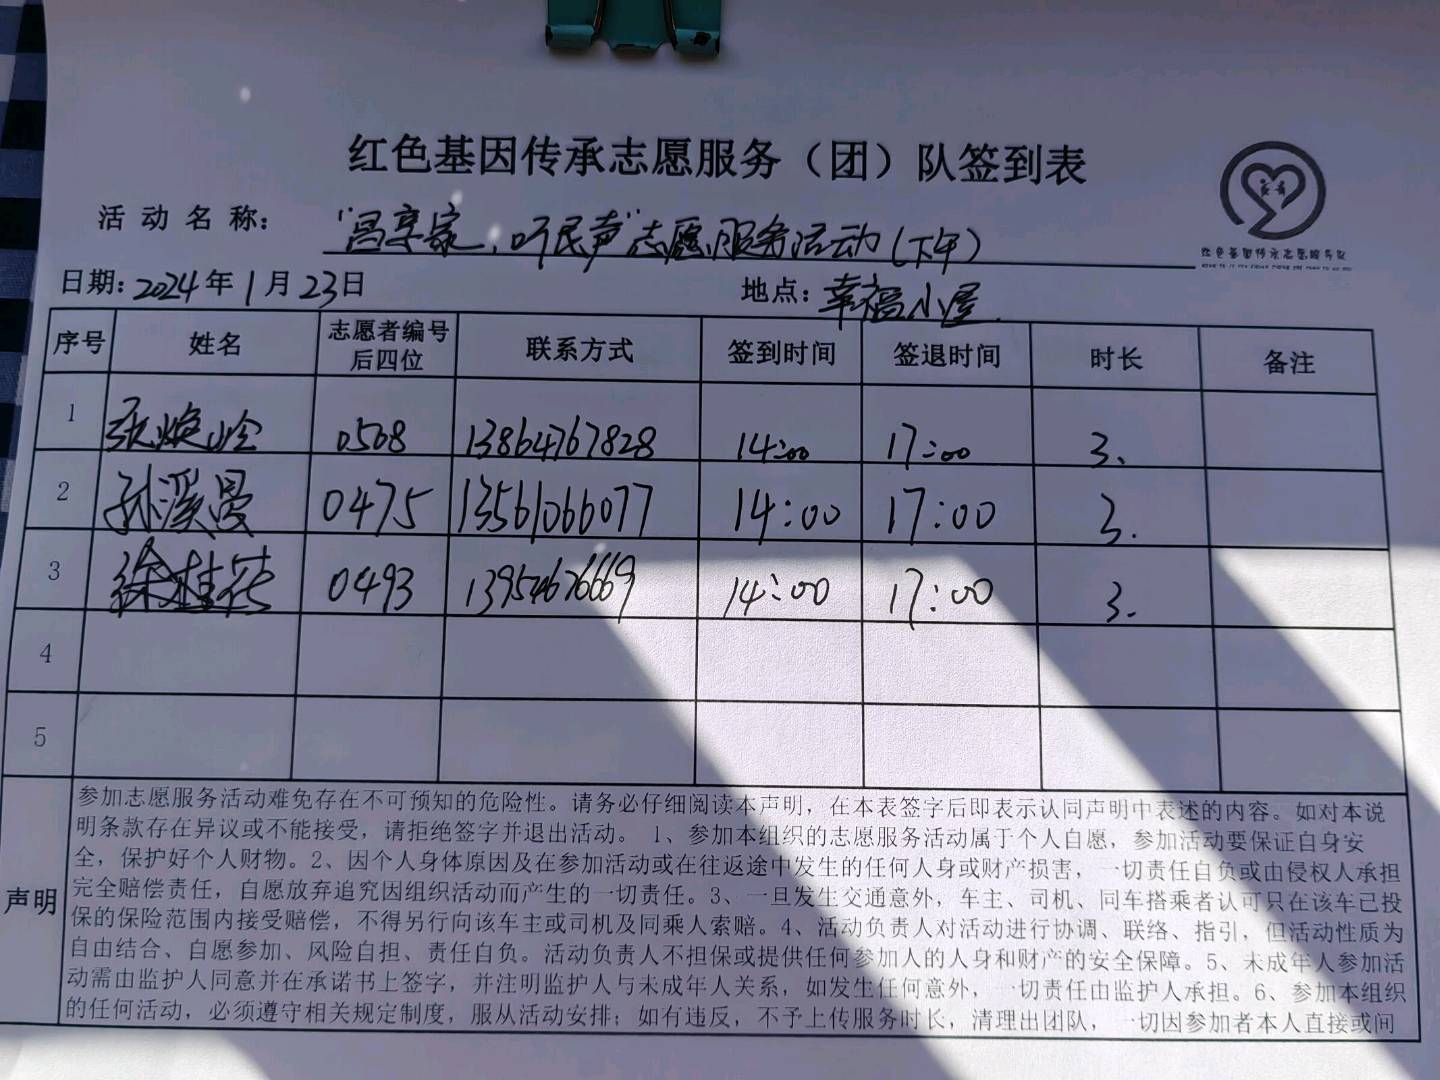 红色基因传承志愿服务（团）队签到表
活动名称： “昌享家，听民声”志愿服务活动（下午）
红色基因传承志愿服务队
日期：2024年1月23日 地点：幸福小屋
序号 姓名 志愿者编号后四位 联系方式 签到时间 签退时间 时长 备注
1 张焕岭 0508 13864767828 14:00 17:00 3.
2 孙溪曼 0475 13561066077 14:00 17:00 3.
3 徐桂花 0493 14:00 17:00 3.
4
5
声明
参加志愿服务活动难免存在不可预知的危险性。请务必仔细阅读本声明，在本表签字后即表示认同声明中表述的内容。如对本说
明条款存在异议或不能接受，请拒绝签字并退出活动。 1、参加本组织的志愿服务活动属于个人自愿，参加活动要保证自身安
全，保护好个人财物。2、因个人身体原因及在参加活动或在往返途中发生的任何人身或财产损害，一切责任自负或由侵权人承担
完全赔偿责任，自愿放弃追究因组织活动而产生的一切责任。3、一旦发生交通意外，车主、司机、同车搭乘者认可只在该车已投
保的保险范围内接受赔偿，不得另行向该车主或司机及同乘人索赔。4、活动负责人对活动进行协调、联络、指引，但活动性质为
自由结合、自愿参加、风险自担、责任自负。活动负责人不担保或提供任何参加人的人身和财产的安全保障。5、未成年人参加活
动需由监护人同意并在承诺书上签字，并注明监护人与未成年人关系，如发生任何意外，一切责任由监护人承担。6、参加本组织
的任何活动，必须遵守相关规定制度，服从活动安排；如有违反，不予上传服务时长，清理出团队，一切因参加者本人直接或间